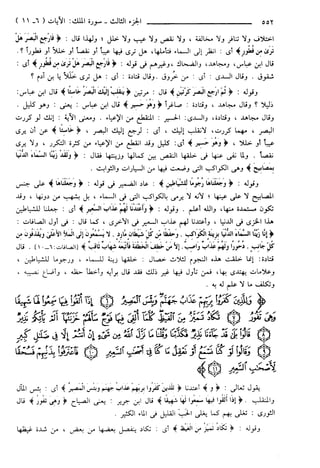 ٥٥٢ الجزء الثالث - سورة الملك: الآيات (٦ - ١١)
اختلاف ولا تنافر ولا مخالفة ، ولا نقص ولا عيب ولا خلل ؛ ولهذا قال : ﴿ فَارْجِعِ الْبَصَرَ هَلْ
تَرَى مِن فُطُورٍ ﴾ أى : انظر إلى السماء فتأملها، هل ترى فيها عيباً أو نقصاً أو خللاً أو فطوراً ؟ .
قال ابن عباس، ومجاهد، والضحاك، وغيرهم فى قوله : ﴿ فَارْجِعِ الْبَصَرَ هَلْ تَرَى مِن فُطُورٍ ﴾ أى :
شقوق . وقال السدى : أى : من خُروق .وقال قتادة : أى : هل ترى خَلَلاً يا ابن آدم ؟
وقوله : ﴿ ثُمَّ ارْجِعِ الْبَصَرَ كَرَّتَيْنِ ﴾ قال : مرتين ﴿ يَنقَلِبْ إِلَيْكَ الْبَصَرُ خَاسِئًا ﴾ قال ابن عباس:
ذليلا ؟ وقال مجاهد ، وقتادة : صاغراً ﴿ وَهُوَ حَسِيرٌ ﴾ قال ابن عباس : يعنى : وهو كليل .
وقال مجاهد ، وقتادة، والسدى: الحسير : المنقطع من الإعياء . ومعنى الآية : إنك لو كررت
البصر ، مهما كررت، لانقلب إليك ، أى : لرجع إليك البصر ، ﴿ خَاسِئًا ﴾ عن أن يرى
عيباً أو خللا ، ﴿ وَهُوَ حَسِيرٌ ﴾ أى: كليل وقد انقطع من الإعياء من كثرة التكرر ، ولا يرى
نقصاً . ولما نفى عنها فى خلقها النقص بين كمالها وزينتها فقال: ﴿ وَلَقَدْ زَيَّنَّا السَّمَاءَ الدُّنْيَا
بِمَصَابِيحَ ﴾ وهى الكواكب التى وضعت فيها من السيارات والثوابت .
وقوله : ﴿ وَجَعَلْنَاهَا رُجُومًا لِّلشَّيَاطِينِ ﴾ : عاد الضمير فى قوله : ﴿ وَجَعَلْنَاهَا ﴾ على جنس
المصابيح لا على عينها ؛ لأنه لا يرمى بالكواكب التى فى السماء ، بل بشهب من دونها ، وقد
تكون مستمدة منها، والله أعلم . وقوله : ﴿ وَأَعْتَدْنَا لَهُمْ عَذَابَ السَّعِيرِ ﴾ أى : جعلنا للشياطين
هذا الخزى فى الدنيا ، وأعتدنا لهم عذاب السعير فى الأخرى ، كما قال : فى أول الصافات :
﴿ إِنَّا زَيَّنَّا السَّمَاءَ الدُّنْيَا بِزِينَةٍ الْكَوَاكِبِ . وَحِفْظًا مِّن كُلِّ شَيْطَانٍ مَّارِدٍ . لَا يَسَّمَّعُونَ إِلَى الْمَلَإِ الْأَعْلَى وَيُقْذَفُونَ مِن
كُلِّ جَانِبٍ . دُحُورًا وَلَهُمْ عَذَابٌ وَاصِبٌ . إِلَّا مَنْ خَطِفَ الْخَطْفَةَ فَأَتْبَعَهُ شِهَابٌ ثَاقِبٌ ﴾ [الصافات : ٦-١٠] . قال
قتادة: إنما خلقت هذه النجوم لثلاث خصال : خلقها زينة للسماء ، ورجوما للشياطين ،
وعلامات يهتدى بها، فمن تأول فيها غير ذلك فقد قال برأيه وأخطأ حظه ، وأضاع نصيبه ،
وتكلف ما لا علم له به .
﴿ وَلِلَّذِينَ كَفَرُوا بِرَبِّهِمْ عَذَابُ جَهَنَّمَ وَبِئْسَ الْمَصِيرُ ۝ إِذَا أُلْقُوا فِيهَا سَمِعُوا لَهَا شَهِيقًا وَهِيَ تَفُورُ
۝ تَكَادُ تَمَيَّزُ مِنَ الْغَيْظِ كُلَّمَا أُلْقِيَ فِيهَا فَوْجٌ سَأَلَهُمْ خَزَنَتُهَا أَلَمْ يَأْتِكُمْ نَذِيرٌ
۝ قَالُوا بَلَى قَدْ جَاءَنَا نَذِيرٌ فَكَذَّبْنَا وَقُلْنَا مَا نَزَّلَ اللَّهُ مِن شَيْءٍ إِنْ أَنتُمْ إِلَّا فِي ضَلَالٍ كَبِيرٍ
۝ وَقَالُوا لَوْ كُنَّا نَسْمَعُ أَوْ نَعْقِلُ مَا كُنَّا فِي أَصْحَابِ السَّعِيرِ ۝ فَاعْتَرَفُوا بِذَنبِهِمْ فَسُحْقًا
لِّأَصْحَابِ السَّعِيرِ ۝ ﴾
يقول تعالى : ﴿ وَ ﴾ أعتدنا ﴿ لِلَّذِينَ كَفَرُوا بِرَبِّهِمْ عَذَابُ جَهَنَّمَ وَبِئْسَ الْمَصِيرُ ﴾ أى : بئس المآل
والمنقلب . ﴿ إِذَا أُلْقُوا فِيهَا سَمِعُوا لَهَا شَهِيقًا ﴾ قال ابن جرير : يعنى الصياح ﴿ وَهِيَ تَفُورُ ﴾ قال
الثورى : تغلى بهم كما يغلى الحَبّ القليل فى الماء الكثير .
وقوله : ﴿ تَكَادُ تَمَيَّزُ مِنَ الْغَيْظِ ﴾ أى : تكاد ينفصل بعضها من بعض ، من شدة غيظها